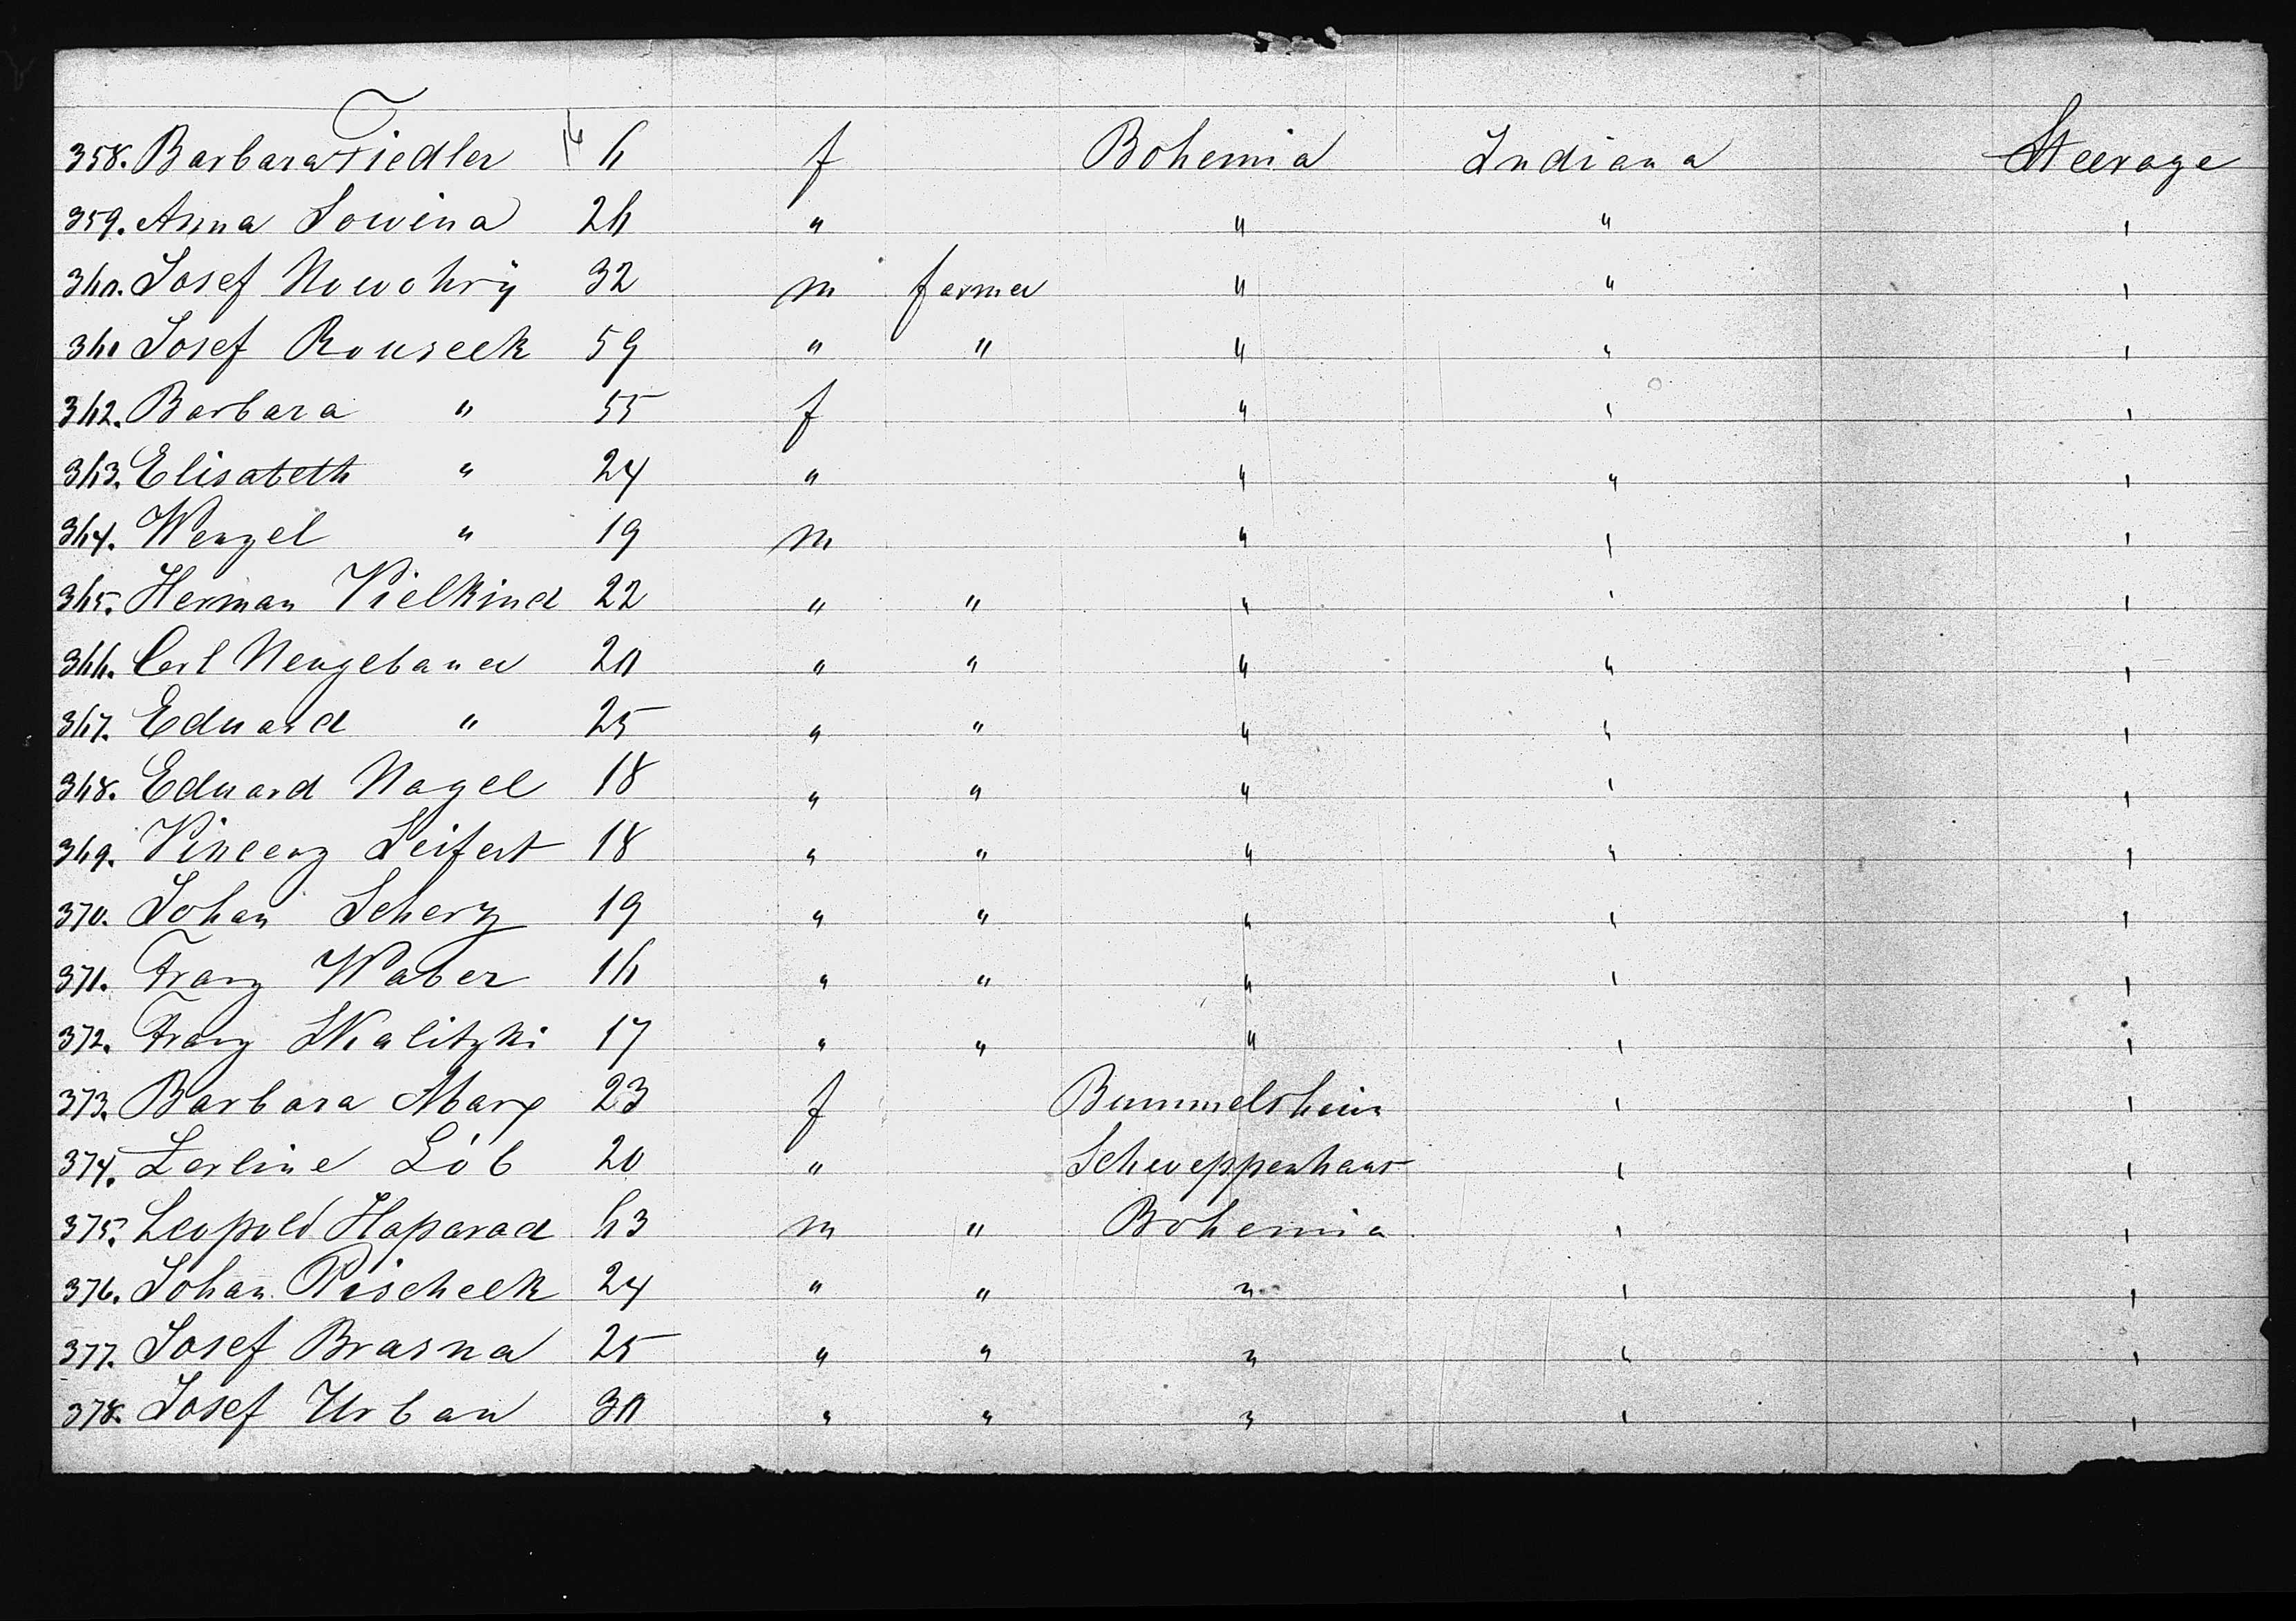 358. Barbara Fiedler 6 f Bohemia Indiana Steerage
359. Anna Sowina 26 " " " "
360. Josef Nowohrÿ 32 m farmer " " "
361 Josef Rouseck 59 " " " " "
362. Barbara " 55 f " " "
363. Elisabeth " 24 " " " "
364. Wenzel " 19 m " " "
365. Herman Vielkind 22 " " " " "
366. Carl Neugebauer 20 " " " " "
367. Eduard " 25 " " " " "
368. Eduard Nagel 18 " " " " "
369. Vincenz Seifert 18 " " " " "
370. Johan Scherz 19 " " " " "
371. Franz Waber 16 " " " " "
372. Franz Skalitzki 17 " " " " "
373. Barbara Marx 23 f Bummelsheim " "
374. Zerline Löb 20 " Schweppenhaus " "
375. Leopold Haparad 63 m " Bohemia " "
376. Johan Pischeck 24 " " " " "
377. Josef Brasna 25 " " " " "
378. Josef Urban 30 " " " " "